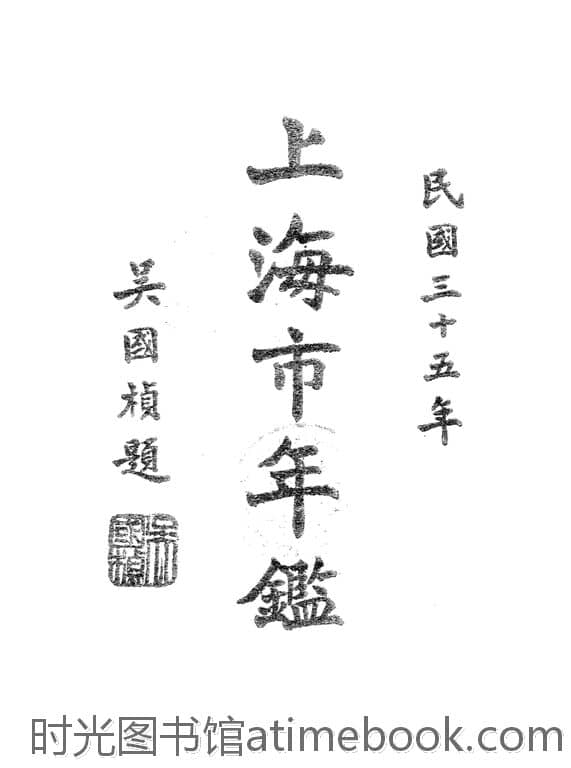 民國三十五年
上海市年鑑
吳國楨題
吳國楨
时光图书馆atimebook.com